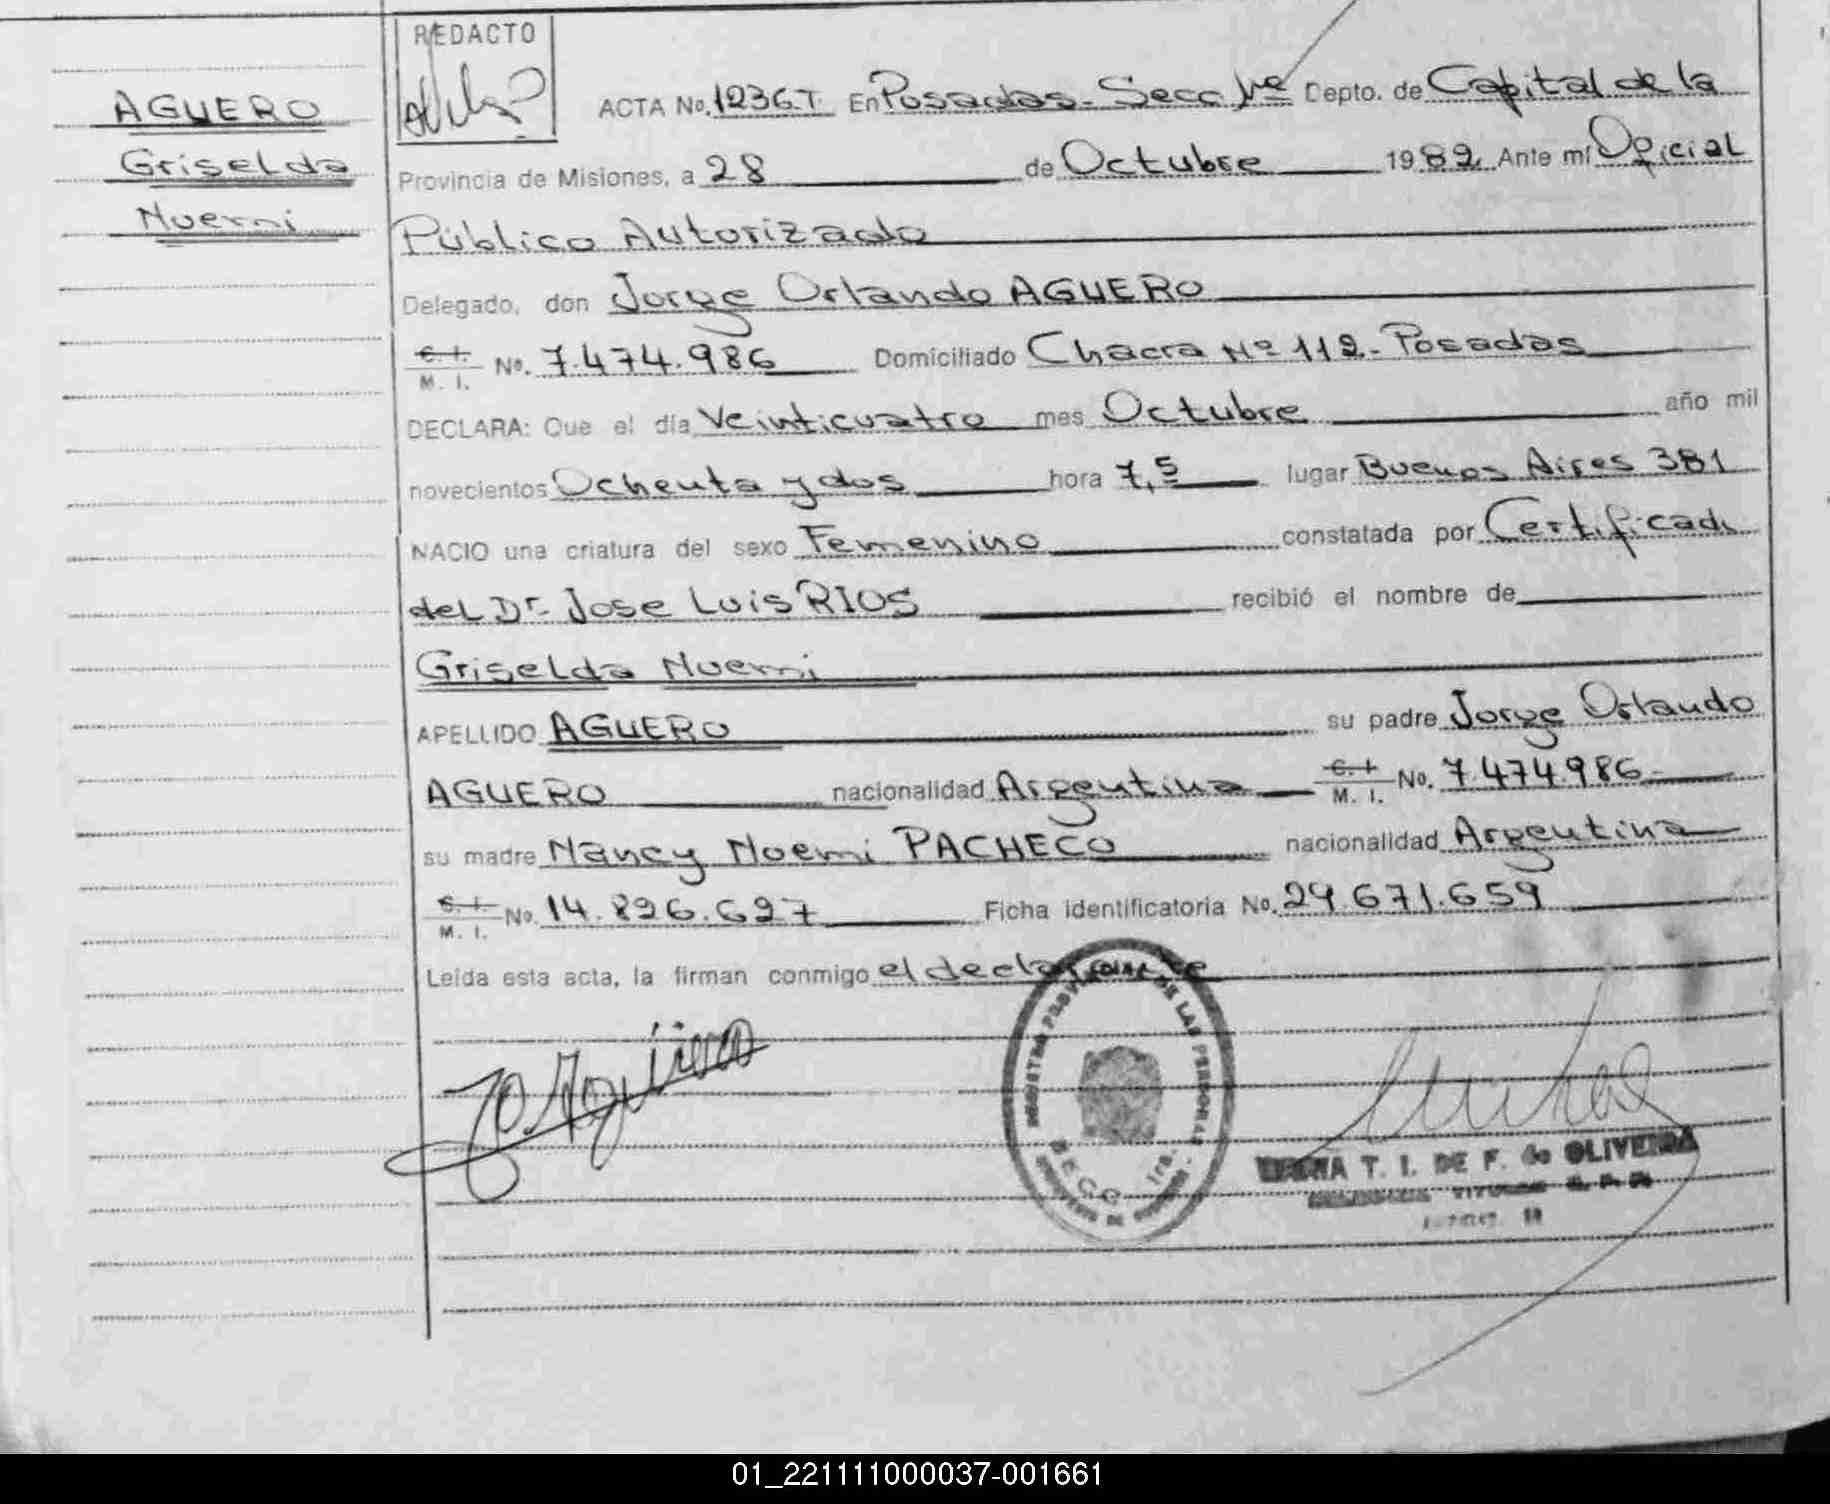 REDACTO
AGUERO
Griselda
Nuemi
ACTA No. 1236.T. En Posadas - Secc 1ra Depto. de Capital de la
Provincia de Misiones, a 28 de Octubre 1982 Ante mí Oficial
Público Autorizado
Delegado, don Jorge Orlando AGUERO
C. I.
M. I. No. 7.474.986 Domiciliado Chacra Nº 112 - Posadas
DECLARA: Que el día Veinticuatro mes Octubre año mil
novecientos Ochenta y dos hora 7,5 lugar Buenos Aires 381
NACIO una criatura del sexo Femenino constatada por Certificado
del Dr. Jose Luis RIOS recibió el nombre de
Griselda Nuemi
APELLIDO AGUERO su padre Jorge Orlando
AGUERO nacionalidad Argentina C. I.
M. I. No. 7.474.986
su madre Nancy Noemi PACHECO nacionalidad Argentina
C. I.
M. I. No. 14.826.627 Ficha identificatoria No. 29.671.659
Leída esta acta, la firman conmigo el declarante
DE LAS PERSONAS
SECC 1ra.
T. I. DE F. de OLIVEIRA
01_221111000037-001661